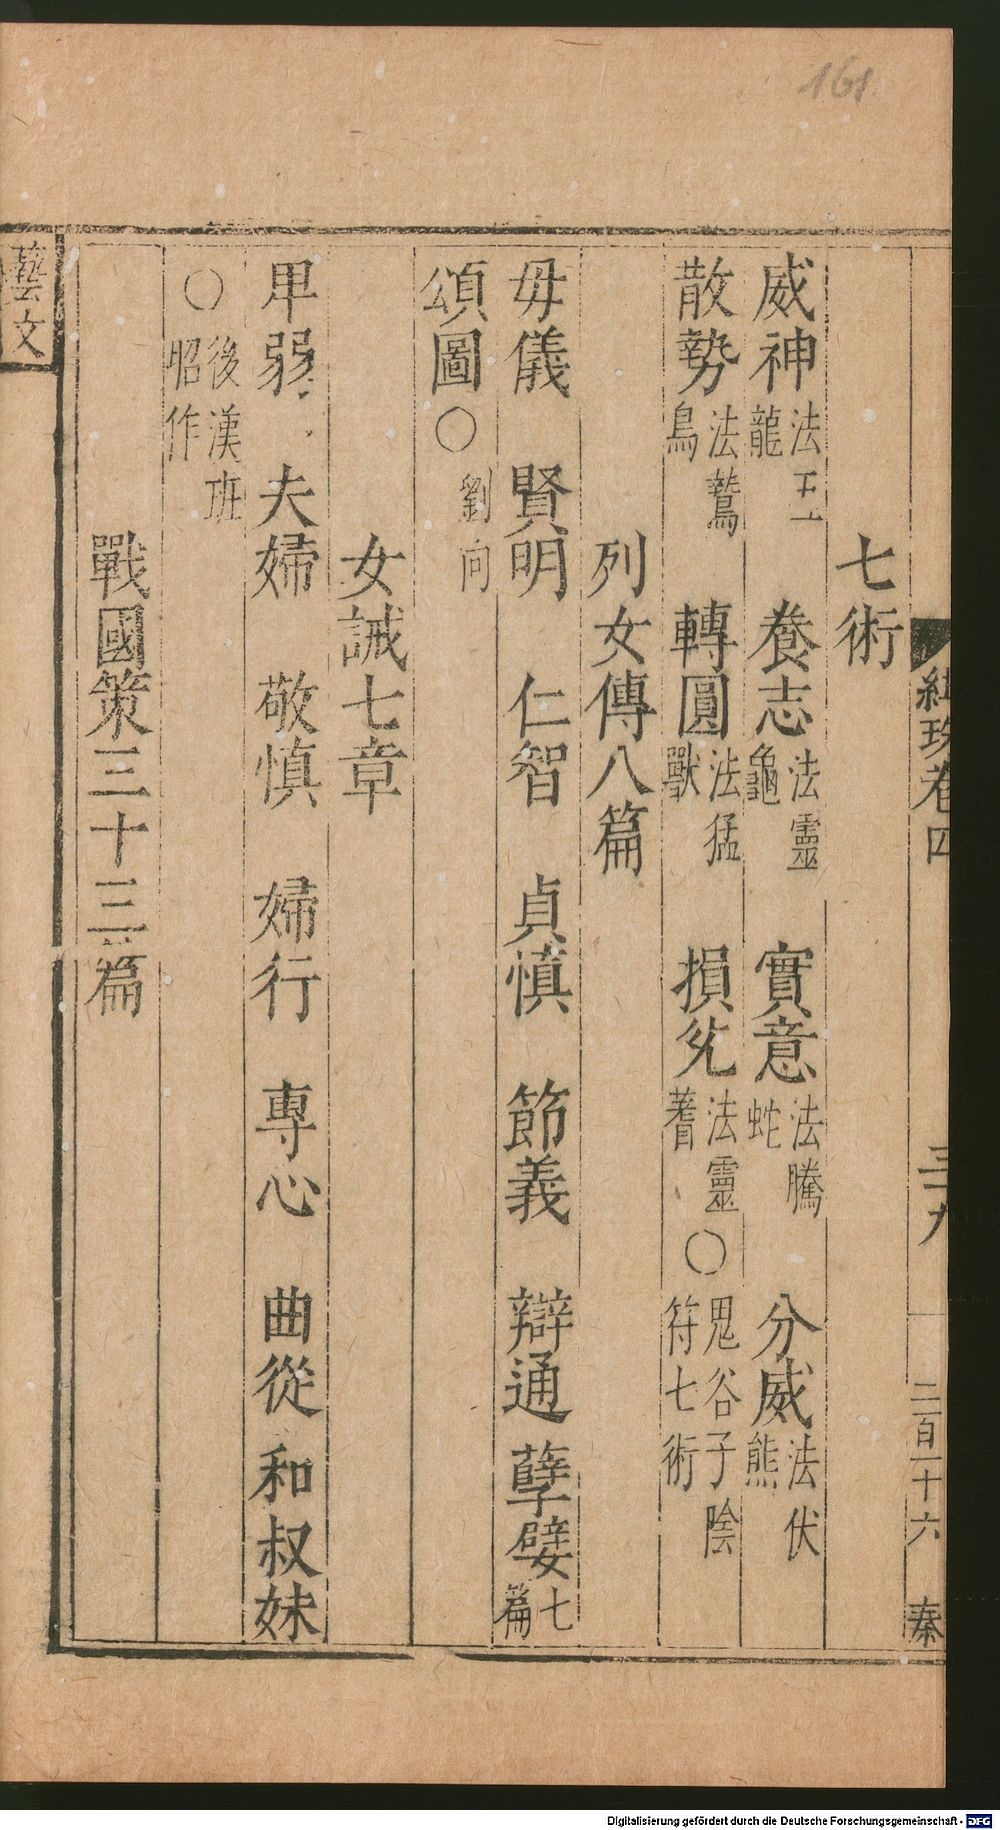 161
緝玫卷四　三九　二百一十六　秦
七術
威神法五龍　養志法靈龜　實意法騰蛇　分威法伏熊
散勢法鷙鳥　轉圓法猛獸　損兊法靈蓍○鬼谷子陰符七術
列女傳八篇
毋儀　賢明　仁智　貞慎　節義　辯通　孽嬖七篇
頌圖○劉向
女誡七章
甲弱　夫婦　敬慎　婦行　專心　曲從　和叔妹
○後漢班昭作
戰國策三十三篇
藝文
Digitalisierung gefördert durch die Deutsche Forschungsgemeinschaft - DFG